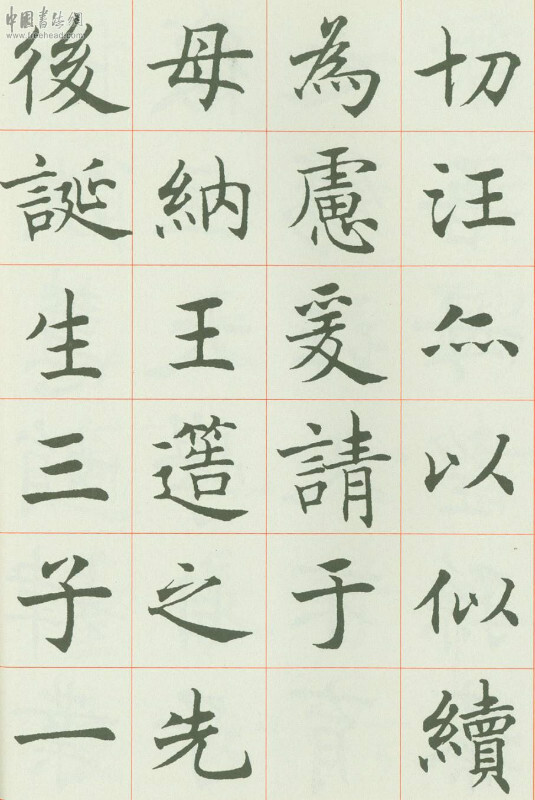 中國書法網
www.freehead.com
切汪以似續
為慮爰請于
母納王簉之先
後誕生三子一